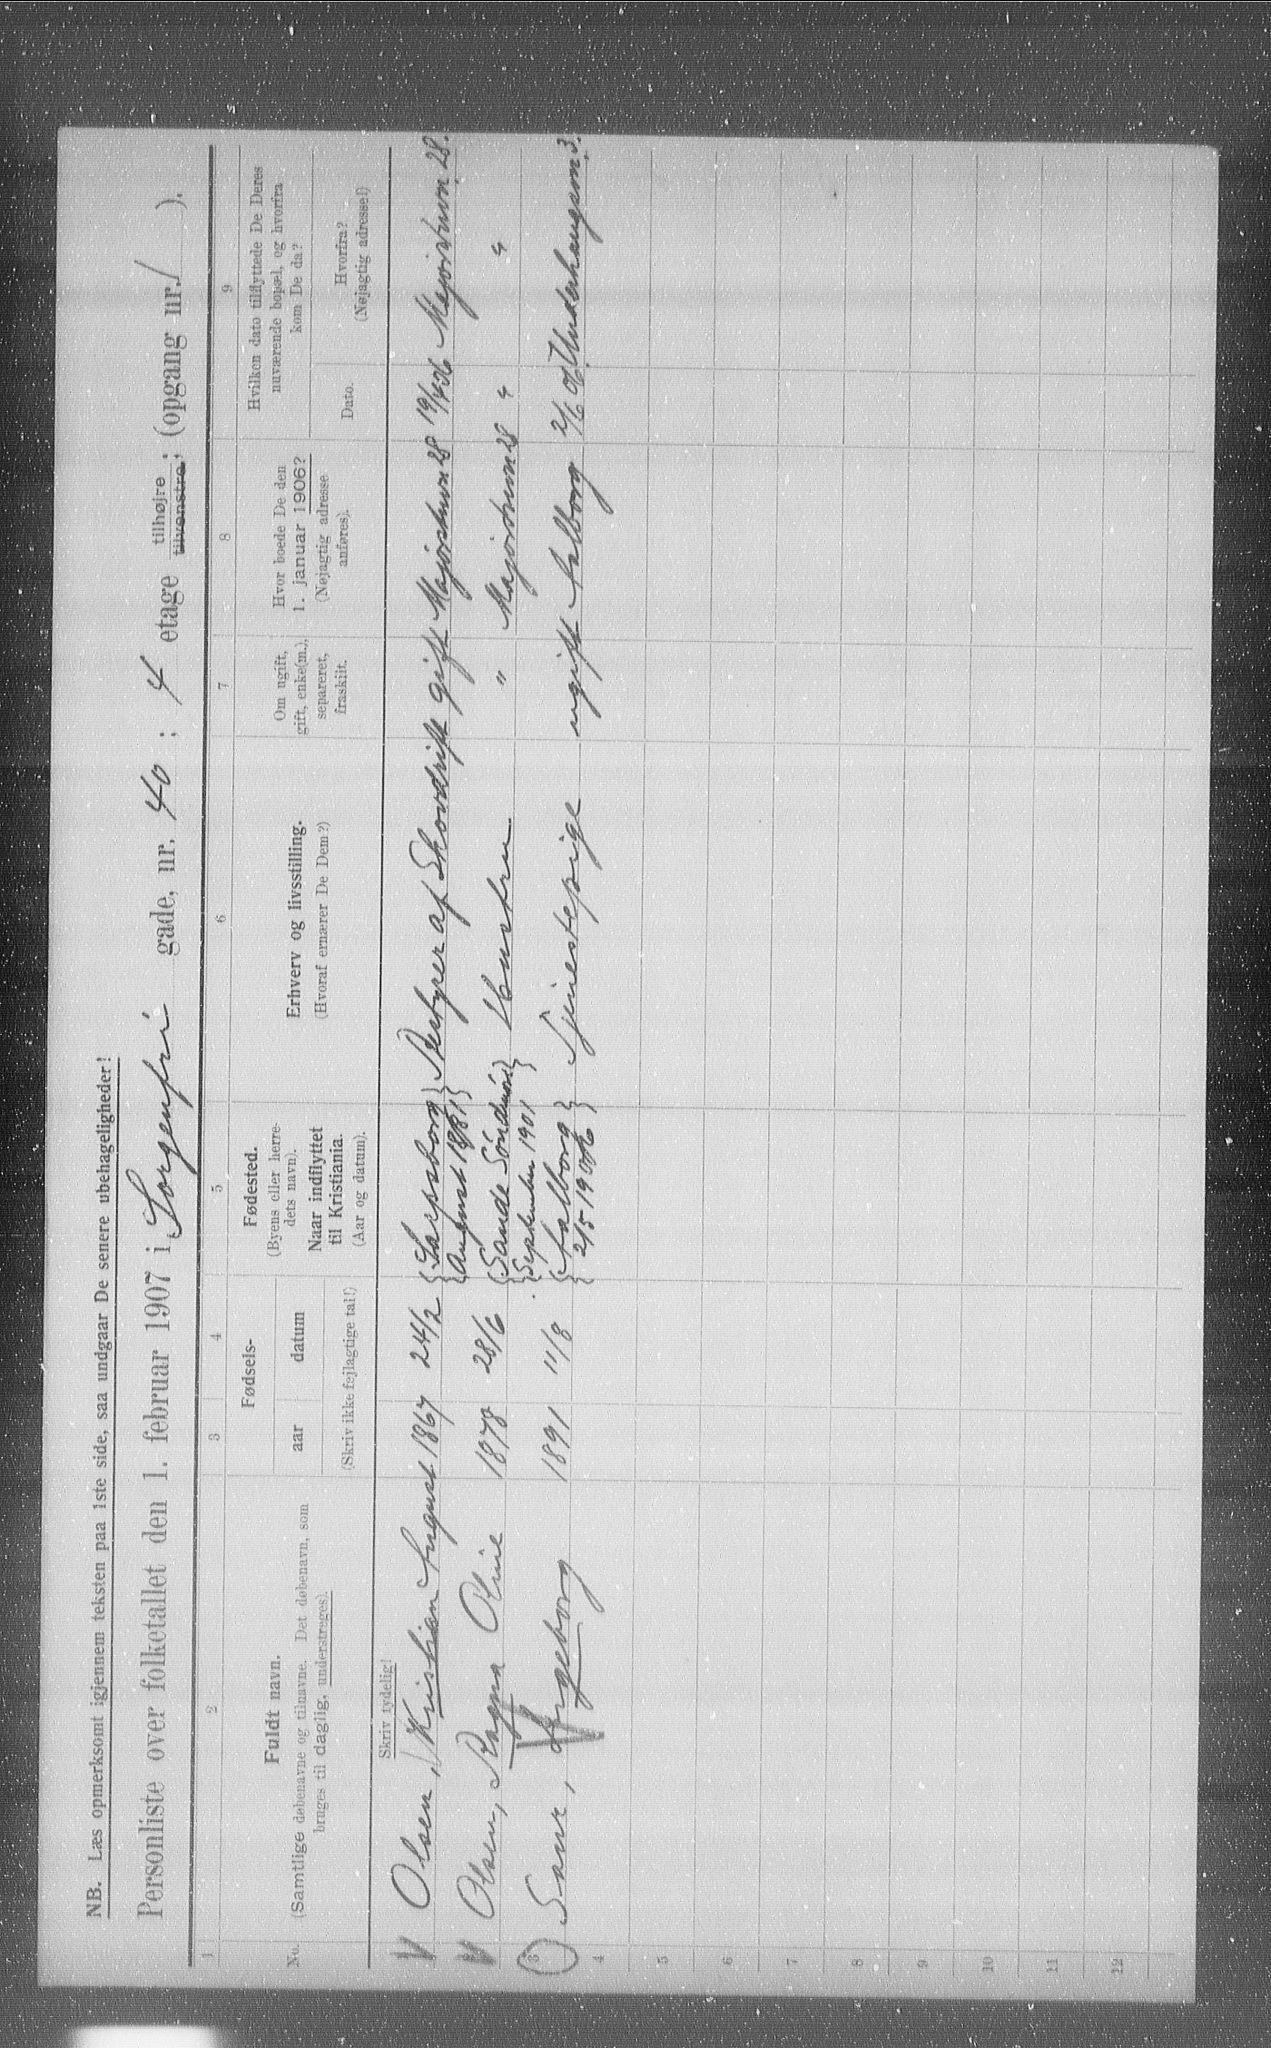 NB. Læs opmerksomt igjennem teksten paa 1ste side, saa undgaar De senere ubehageligheder!
Personliste over folketallet den 1. februar 1907 i Sorgenfri gade, nr. 40 ; 4 etage tilhøjre tilvenstre; (opgang nr. / ).
1 2 3 4 5 6 7 8 9
No.
Fuldt navn.
(Samtlige døbenavne og tilnavne. Det døbenavn, som
bruges til daglig, understreges).
Fødsels-
aar datum
(Skriv ikke fejlagtige tal!)
Fødested.
(Byens eller herre-
dets navn).
Naar indflyttet
til Kristiania.
(Aar og datum).
Erhverv og livsstilling.
(Hvoraf ernærer De Dem?)
Om ugift,
gift, enke(m.),
separeret,
fraskilt.
Hvor boede De den
1. januar 1906?
(Nøjagtig adresse
anføres).
Hvilken dato tilflyttede De Deres
nuværende bopæl, og hvorfra
kom De da?
Dato.
Hvorfra?
(Nøjagtig adresse!)
Skriv tydelig!
Olsen, Kristian August 1867 24/2 {Sarpsborg} Bestyrer af Skovdrift gift Majorstuen 28 19/4 06 Majorstuen 28.
{August 1881}
Olsen, Ragna Oline 1878 28/6 {Sande Söndmör} Hustru " Majorstuen 28 " "
{September 1901}
3 Ingeborg 1891 11/8 {Aalborg} Tjenestepige ugift Aalborg 2/6 06
{2/5 1906}
4
5
6
7
8
9
10
11
12